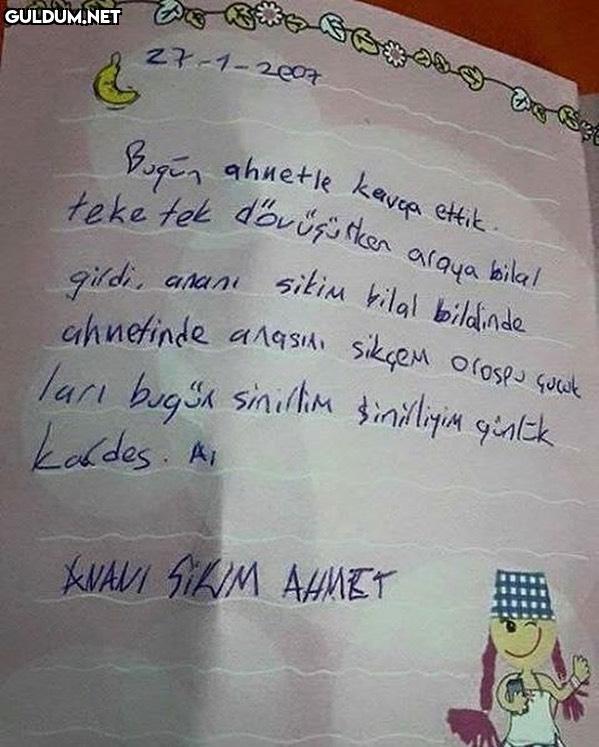 GULDUM.NET
27-1-2007
Bugün ahmetle kavga ettik.
teke tek dövüşürken araya bilal
girdi. ananı sikim bilal bildinde
ahmetinde anasını sikçem orospu çocuk
ları bugün sinirlim sinirliyim günlük
kardeş. A
ANANI SİKİM AHMET